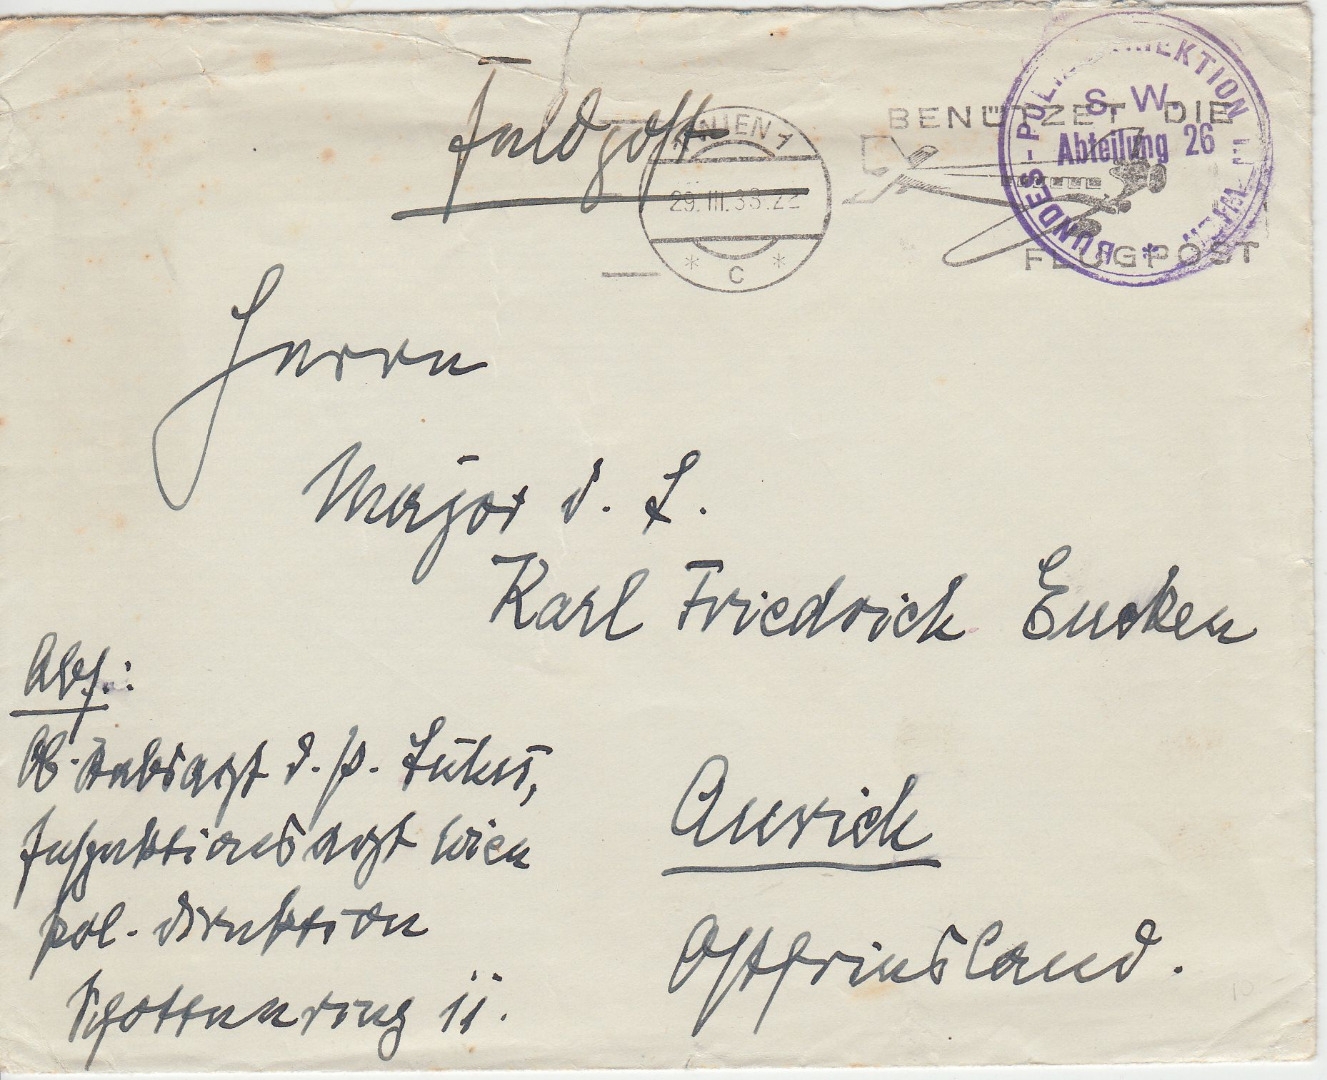 Feldpost
WIEN 1
29. III. 38. 22
* C *
BENÜTZET DIE
FLUGPOST
BUNDES-POLIZEIDIREKTION IN WIEN *
S. W.
Abteilung 26
Herrn
Major d. L.
Karl Friedrich Eucken
Aurich
Ostfriesland.
Abs.:
Ob. Stabsarzt d. P.
Inspektionsarzt Wien
Pol. Direktion
Schottenring 11.